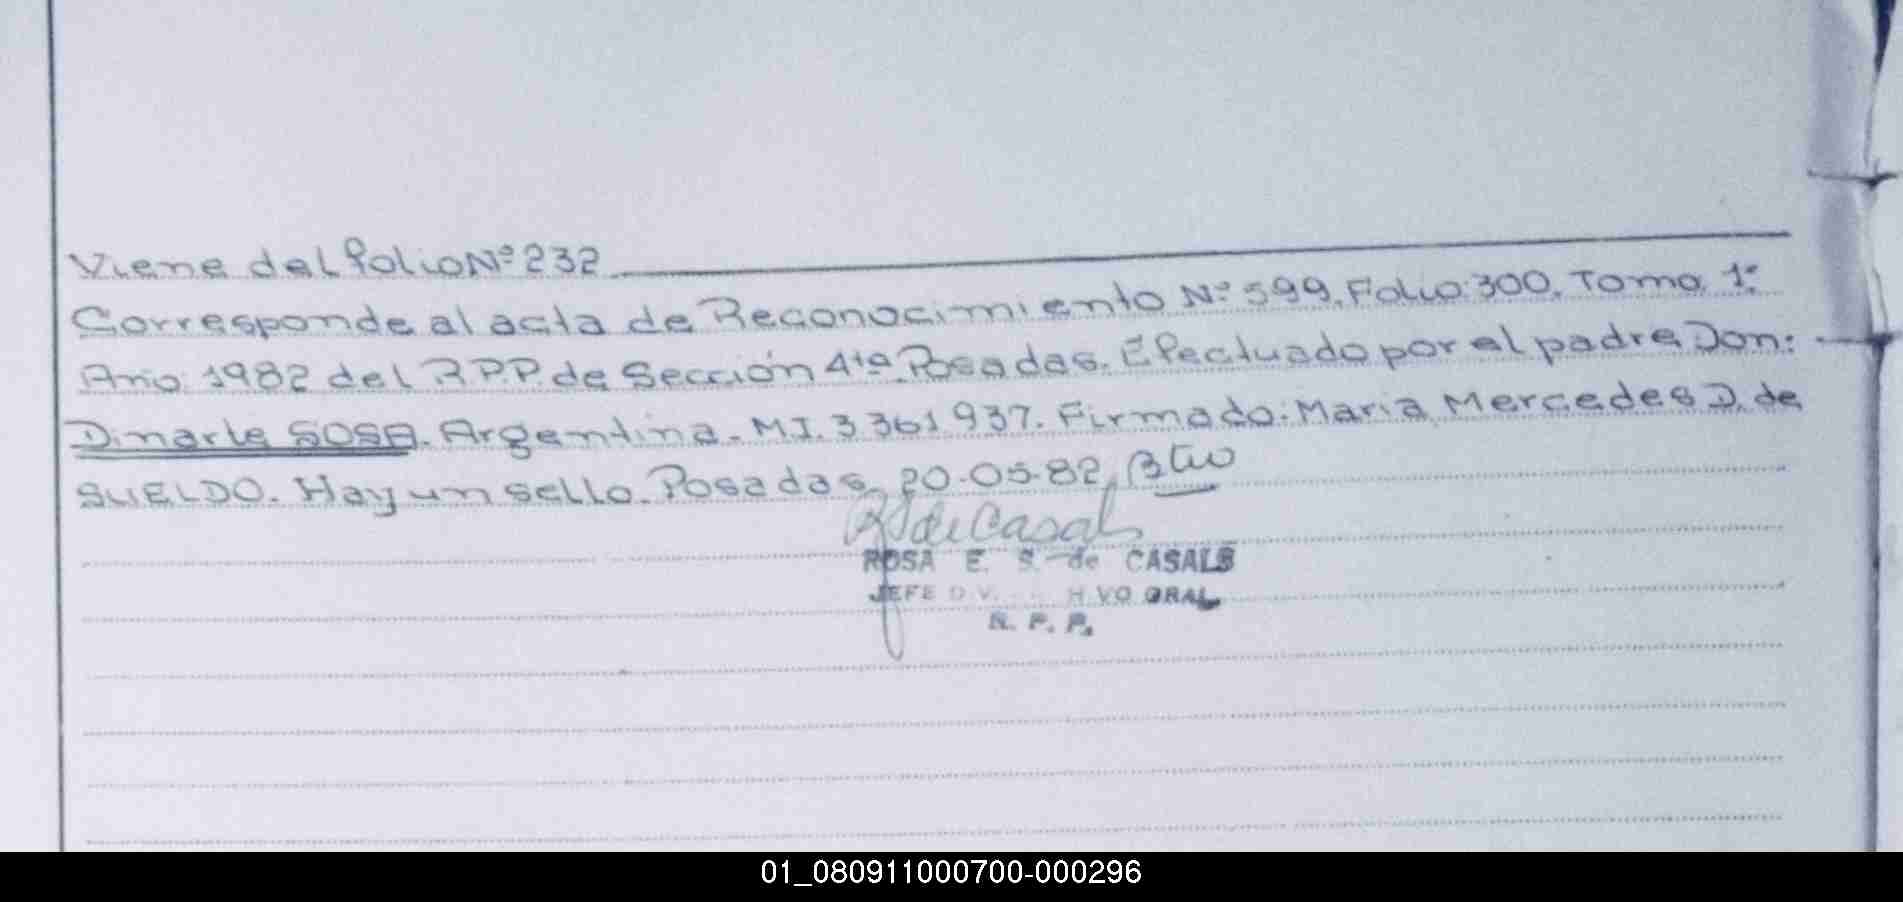 Viene del folio Nº 232
Corresponde al acta de Reconocimiento Nº 599. Folio: 300. Tomo 1º
Año: 1982 del R.P.P. de Sección 4ta Posadas. Efectuado por el padre Don:
Dinarte SOSA. Argentina. MI. 3361937. Firmado: Maria Mercedes D. de
SUELDO. Hay un sello. Posadas, 20-05-82
R S de Casals
ROSA E. S. de CASALS
JEFE GRAL
R. P. P.
01_080911000700-000296